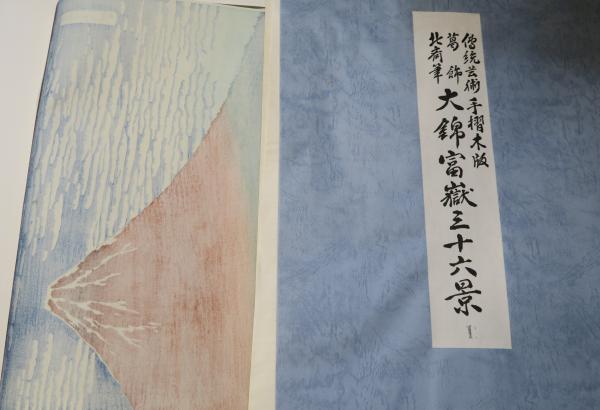 傳統芸術 手摺木版
葛飾
北斎筆
大錦富嶽三十六景